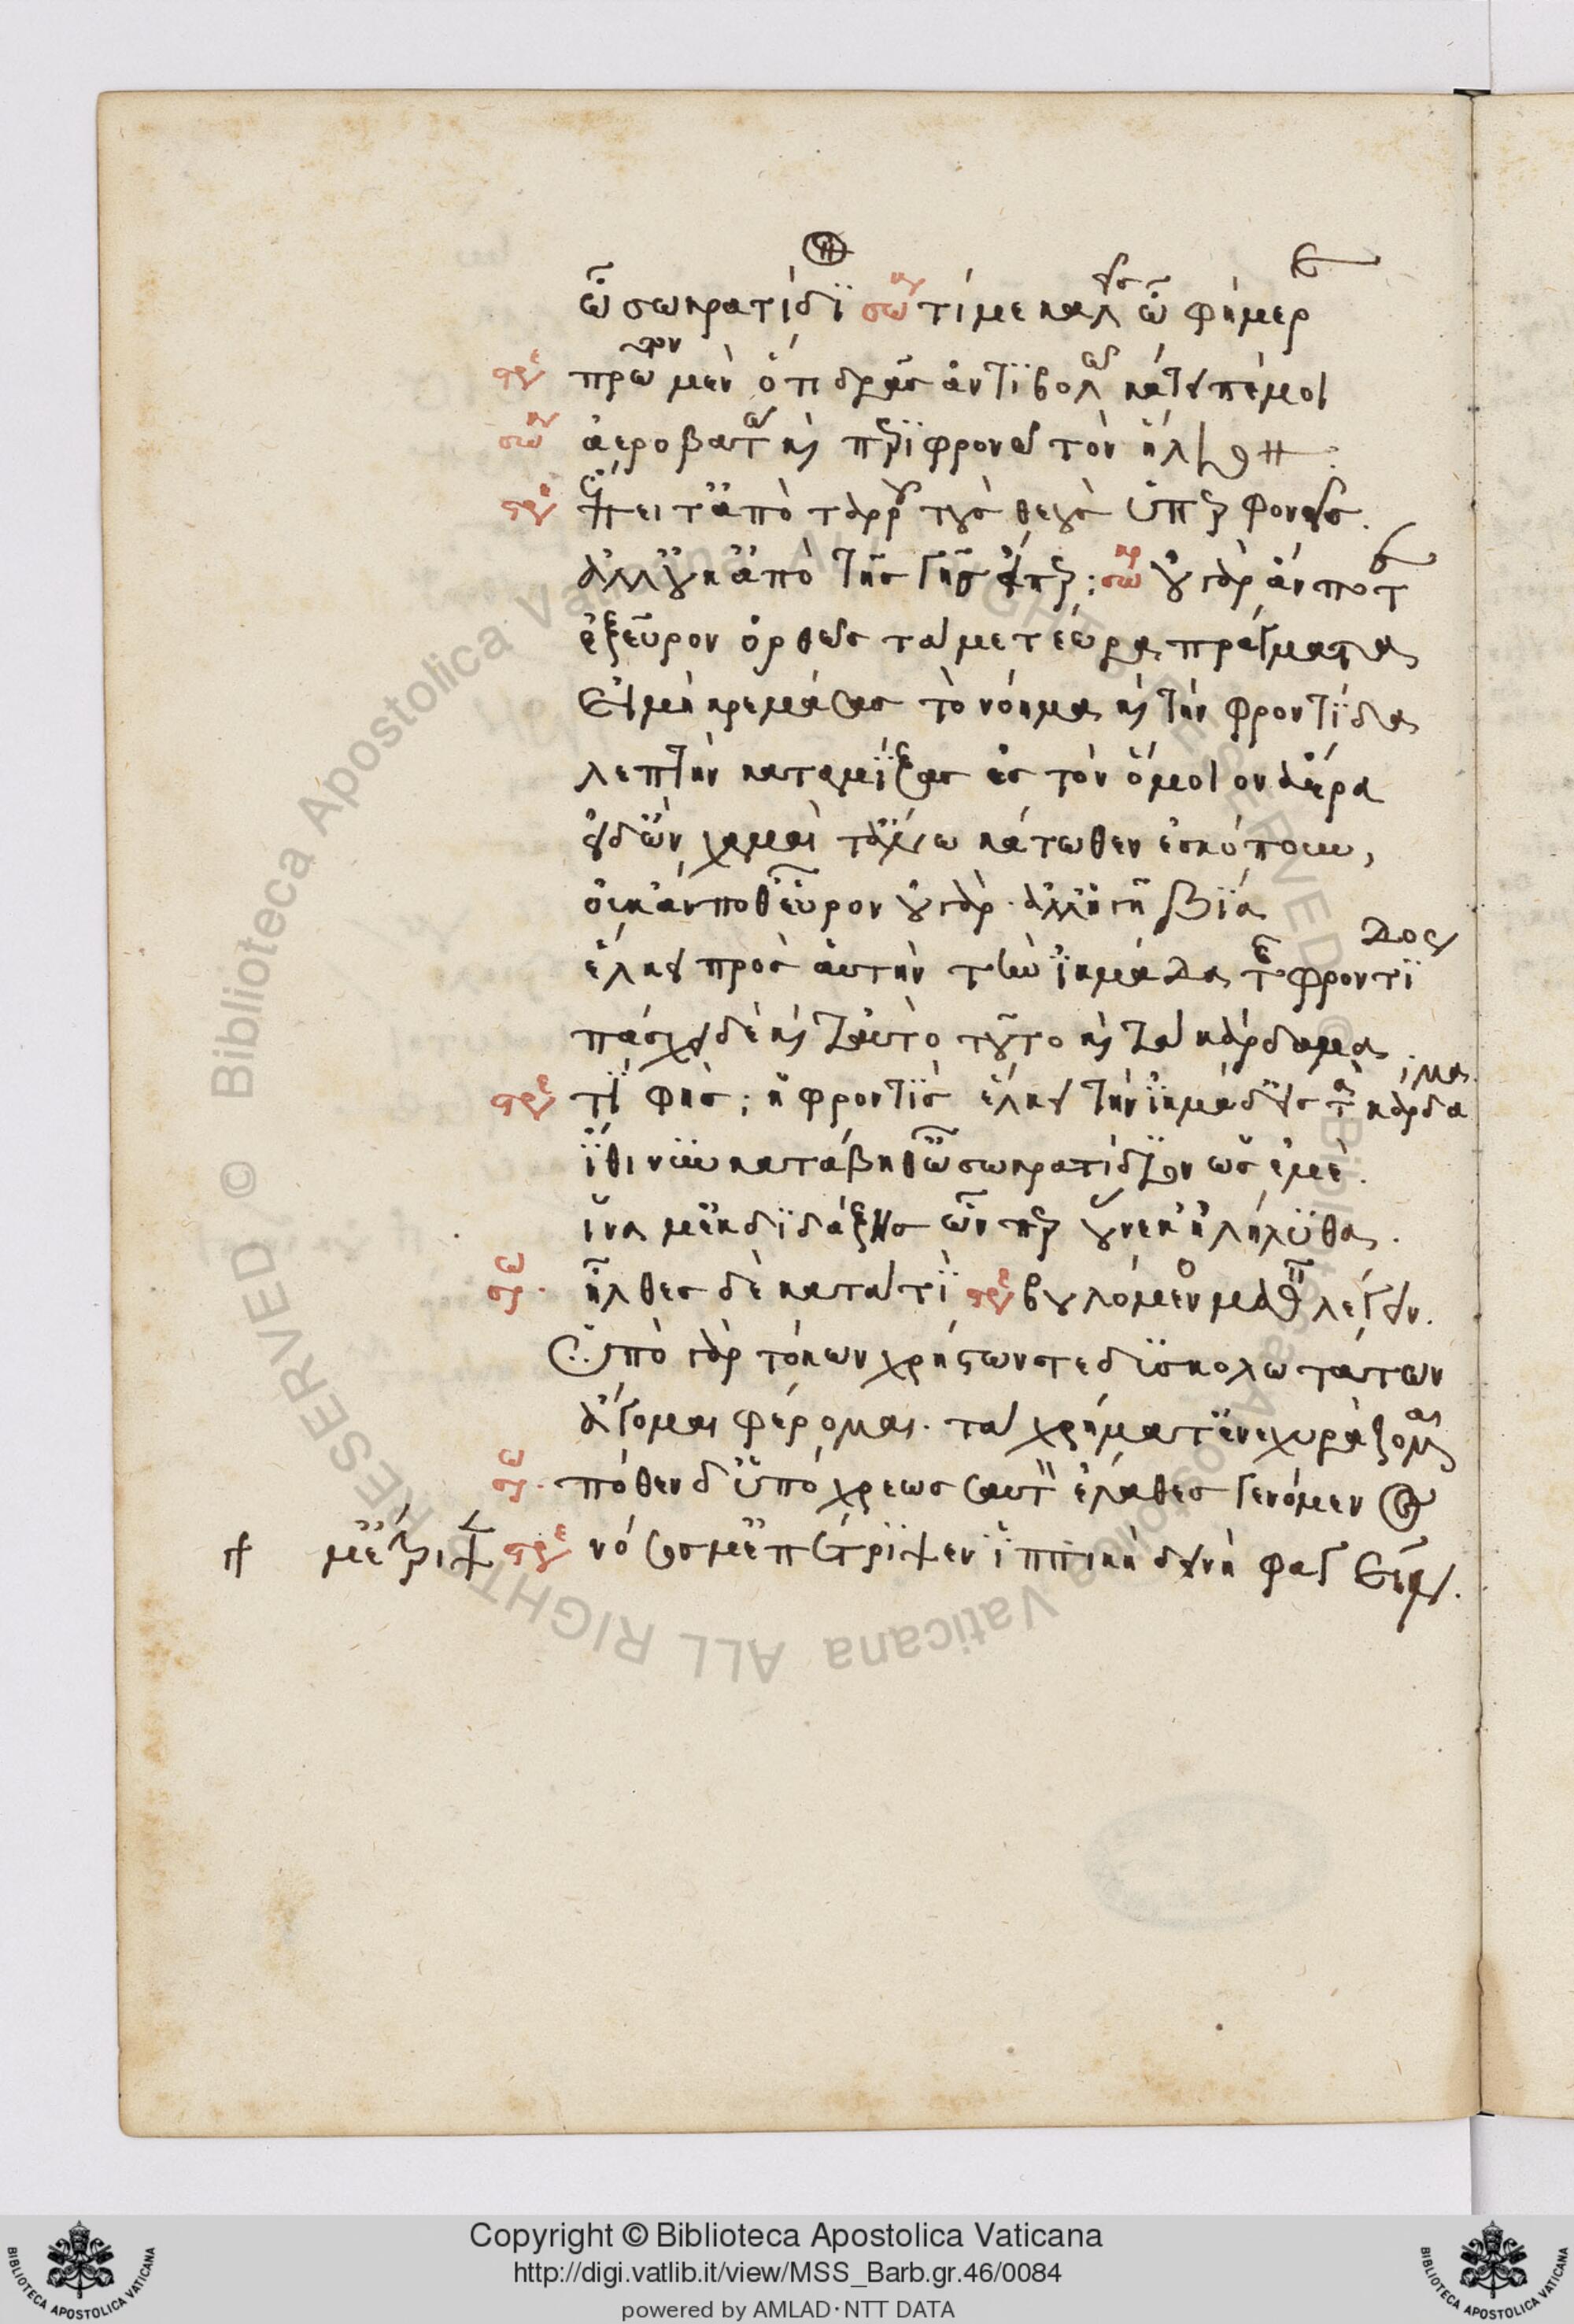 ὦ σωκρατίδϊον σωκρ τί με καλεῖς ὦ φήμερε
στρε πρῶτον μὲν ὅ τι δρᾶς ἀντϊβολῶ κάτειπέ μοι
σωκρ ἀεροβατῶ καὶ περϊφρονῶ τὸν ἥλιον :
στρε ἔπειτ' ἀπὸ ταρροῦ τοὺς θεοὺς ὑπερφρονεῖς.
ἀλλ' οὐκ ἀπὸ τῆς γῆς εἴπερ; σωκρ οὐ γὰρ ἄν ποτε
ἐξεῦρον ὀρθῶς τὰ μετέωρα πράγματα
εἰ μὴ κρεμάσας τὸ νόημα καὶ τὴν φροντϊδα
λεπτὴν καταμϊξας ἐς τὸν ὅμοιον ἀέρα
εἰ δ' ὢν χαμαὶ τἄνω κάτωθεν ἐσκόπουν,
οὐκ ἄν ποθ' εὗρον οὐ γὰρ. ἀλλ' ἡ γῆ βϊα
ἕλκει πρὸς αὑτὴν τὴν ἰκμάδα τῆς φροντϊδος
πάσχει δὲ καὶ ταὐτὸ τοῦτο καὶ τὰ κάρδαμα
στρε τϊ φής; ἡ φροντὶς ἕλκει τὴν ἰκμάδ' εἰς τὰ κάρδαμα.
ἴθι νῦν κατάβηθ' ὦ σωκρατίδϊον ὡς ἐμέ.
ἵνα με ἐκδϊδάξῃς ὧνπερ οὕνεκ' ἐλήλυθα.
σω. ἦλθες δὲ κατὰ τϊ στρε βουλόμενος μαθεῖν λέγειν.
Ὑπὸ γὰρ τόκων χρήστων τε δϋσκολωτάτων
ἄγομαι φέρομαι. τὰ χρήματ' ἐνεχυράζομαι
σω. πόθεν δ' ὑπόχρεως σαυτὸν ἔλαθες γενόμενος
με ἔτριψ στρε νόσος μ' ἐπέτριψεν ἱππικὴ δεινὴ φαγεῖν.